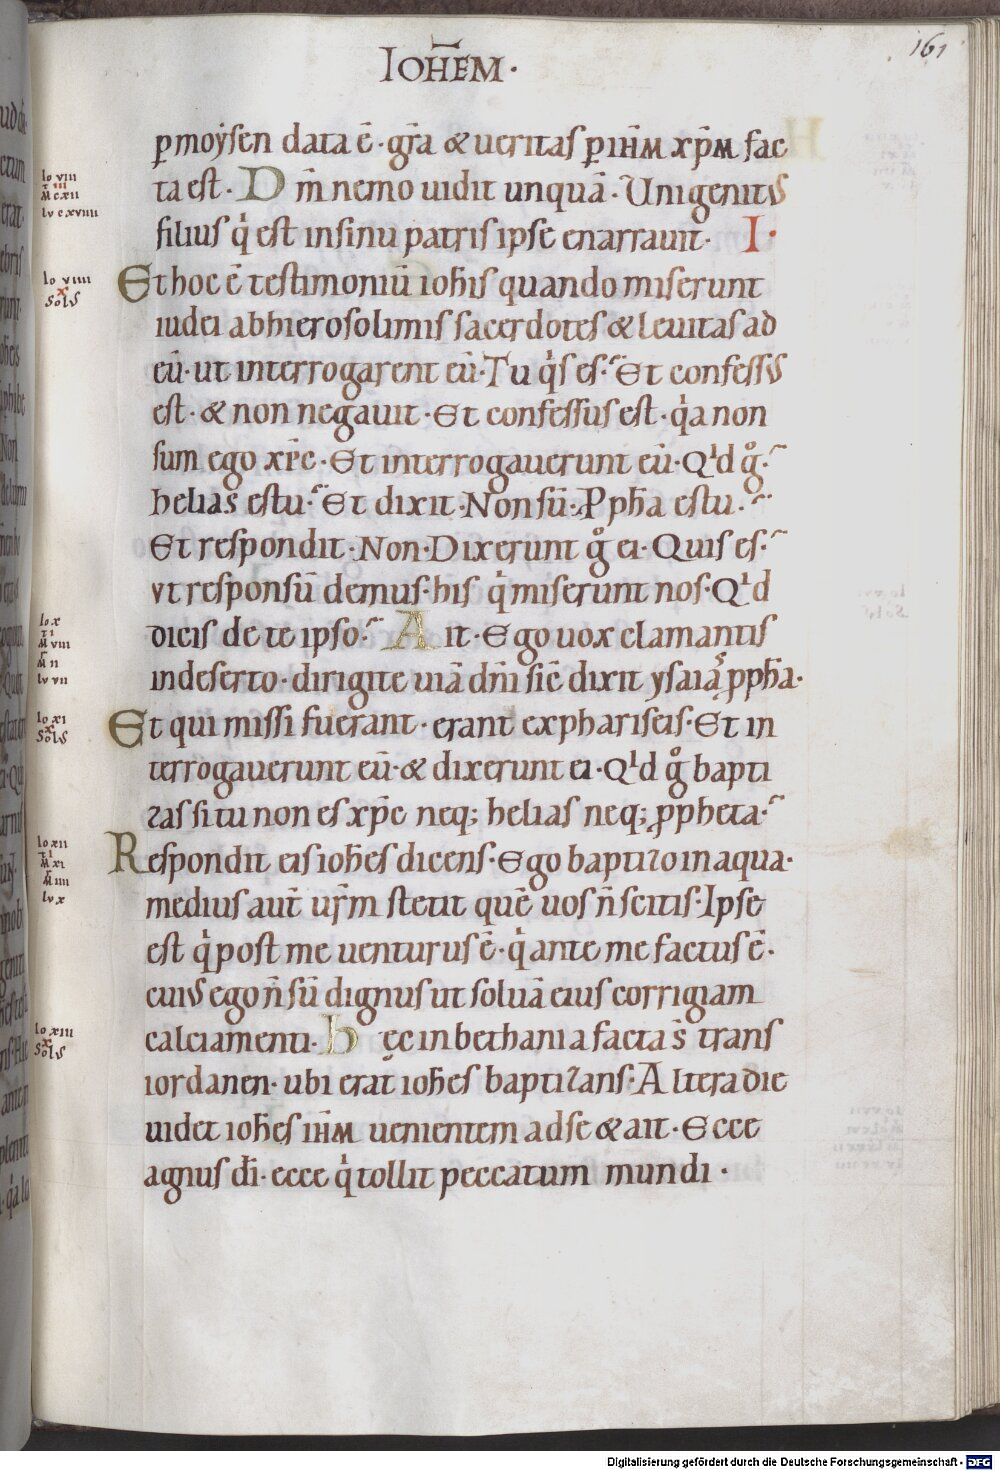 IOHEM·
161
p̱ moẏsen data ē· gr̄a & ueritas p̱ ih̄m xp̄m fac
ta est· Dm̄ nemo uidit unquā· Unigenitus
filius q̇ est insinu patris ipse enarrauit· I·
Et hoc ē testimoniū ioh̄is quando miserunt
iudei abhierosolimis sacerdotes & leuitas ad
eū· ut interrogarent eū· Tu q̇s es· Et confessus
est· & non negauit· Et confessus est· q̇a non
sum ego xp̄c· Et interrogauerunt eū· Qd g̊·
helias estu· Et dixit· Non sū· Pph̄a estu·
Et respondit· Non· Dixerunt g̊ ei· Quis es·
vt responsū demus· his q̇ miserunt nos· Qd
dicis de te ipso· Ait· Ego uox clamantis
indeserto· dirigite uiā dn̄i sic̄ dixit ysaias pph̄a·
Et qui missi fuerant· erant expharisęis· Et in
terrogauerunt eū· & dixerunt ei· Qd g̊ bapti
zas si tu non es xp̄c neq; helias neq; ppheta·
Respondit eis ioh̄es dicens· Ego baptizo in aqua·
medius aut̄ ur̄m stetit quē uos n̄ scitis· Ipse
est q̇ post me uenturus ē· q̇ ante me factus ē·
cuius ego n̄ sū dignus ut soluā eius corrigiam
calciamenti· hęc in bethania facta s̄ trans
iordanen· ubi erat ioh̄es baptizans· Altera die
uidet ioh̄es ih̄m uenientem adse & ait· Ecce
agnus dī· ecce q̇ tollit peccatum mundi·
Io VIII
III
M CXII
LV CXVIIII
Io VIIII
X
Solus
Io X
M VIII
LV VII
Io XI
X
Solus
Io XII
M XI
LV X
Io XIII
X
Solus
Digitalisierung gefördert durch die Deutsche Forschungsgemeinschaft - DFG